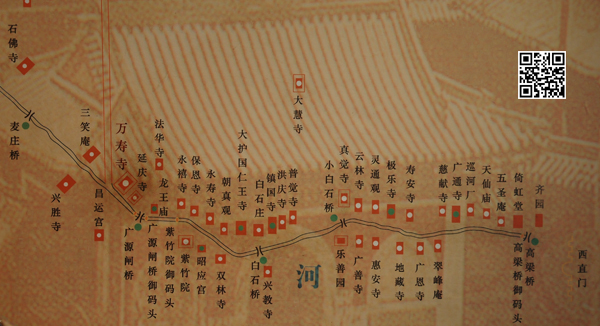 石佛寺
麦庄桥
三笑庵
兴胜寺
万寿寺
昌运宫
延庆寺
法华寺
龙王庙
广源闸桥
广源闸桥御码头
紫竹院御码头
永禧寺
紫竹院
保恩寺
昭应宫
永寿寺
双林寺
朝真观
大护国仁王寺
白石庄
白石桥
镇国寺
兴教寺
洪庆寺
普觉寺
大慧寺
河
小白石桥
真觉寺
乐善园
云林寺
广善寺
灵通观
惠安寺
极乐寺
地藏寺
寿安寺
广恩寺
慈献寺
翠峰庵
广通寺
巡河厂
天仙庙
五圣庵
倚虹堂
高梁桥御码头
齐园
高梁桥
西直门